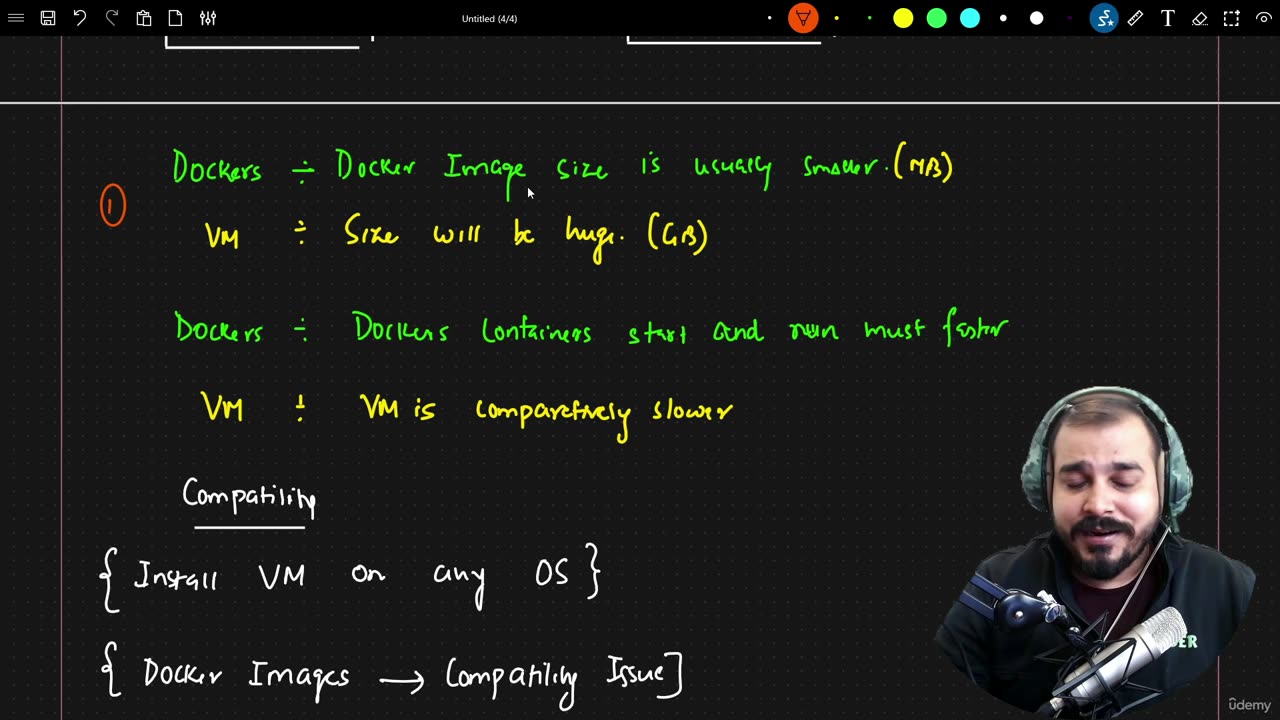 Untitled (4/4)
Dockers ÷ Docker Image size is usually smaller. (MB)
1
VM ÷ Size will be huge. (GB)
Dockers ÷ Dockers Containers start and run must faster
VM ÷ VM is comparetively slower
Compatility
{ Install VM on any OS }
{ Docker Images → Compatility Issue ]
DER
ûdemy